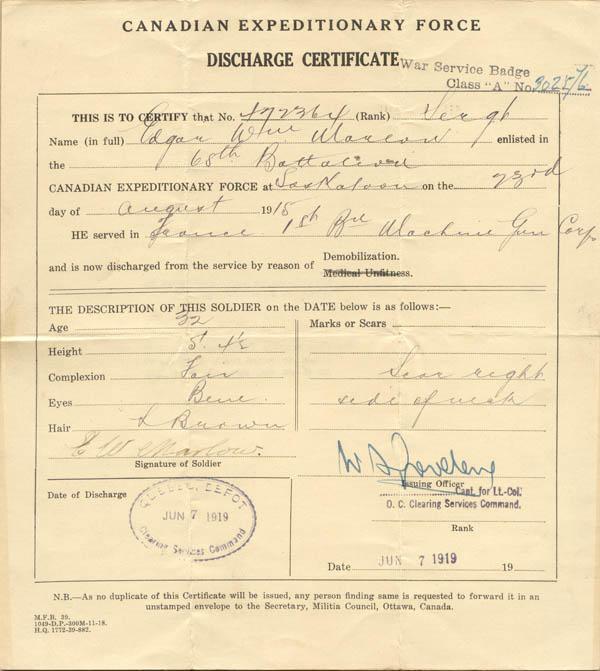 CANADIAN EXPEDITIONARY FORCE
DISCHARGE CERTIFICATE
War Service Badge
Class "A" No
THIS IS TO CERTIFY that No. 472364 (Rank) Sergt
Name (in full) Edgar Wm Marlow enlisted in
the 68th Battalion
CANADIAN EXPEDITIONARY FORCE at Saskatoon on the 23rd
day of August 1915
HE served in France 1st Bn Machine Gun Corps
and is now discharged from the service by reason of Demobilization.
Medical Unfitness.
THE DESCRIPTION OF THIS SOLDIER on the DATE below is as follows:—
Age 32
Height 5' 4½
Complexion Fair
Eyes Blue
Hair L Brown
Marks or Scars
Scar right
side of neck
E W Marlow.
Signature of Soldier
Issuing Officer
Capt. for Lt.-Col.
O. C. Clearing Services Command.
Rank
Date of Discharge
QUEBEC DEPOT
JUN 7 1919
Clearing Services Command
Date JUN 7 1919 19
N.B.—As no duplicate of this Certificate will be issued, any person finding same is requested to forward it in an
unstamped envelope to the Secretary, Militia Council, Ottawa, Canada.
M.F.B. 39.
1049-D.P.-300M-11-18.
H.Q. 1772-39-882.